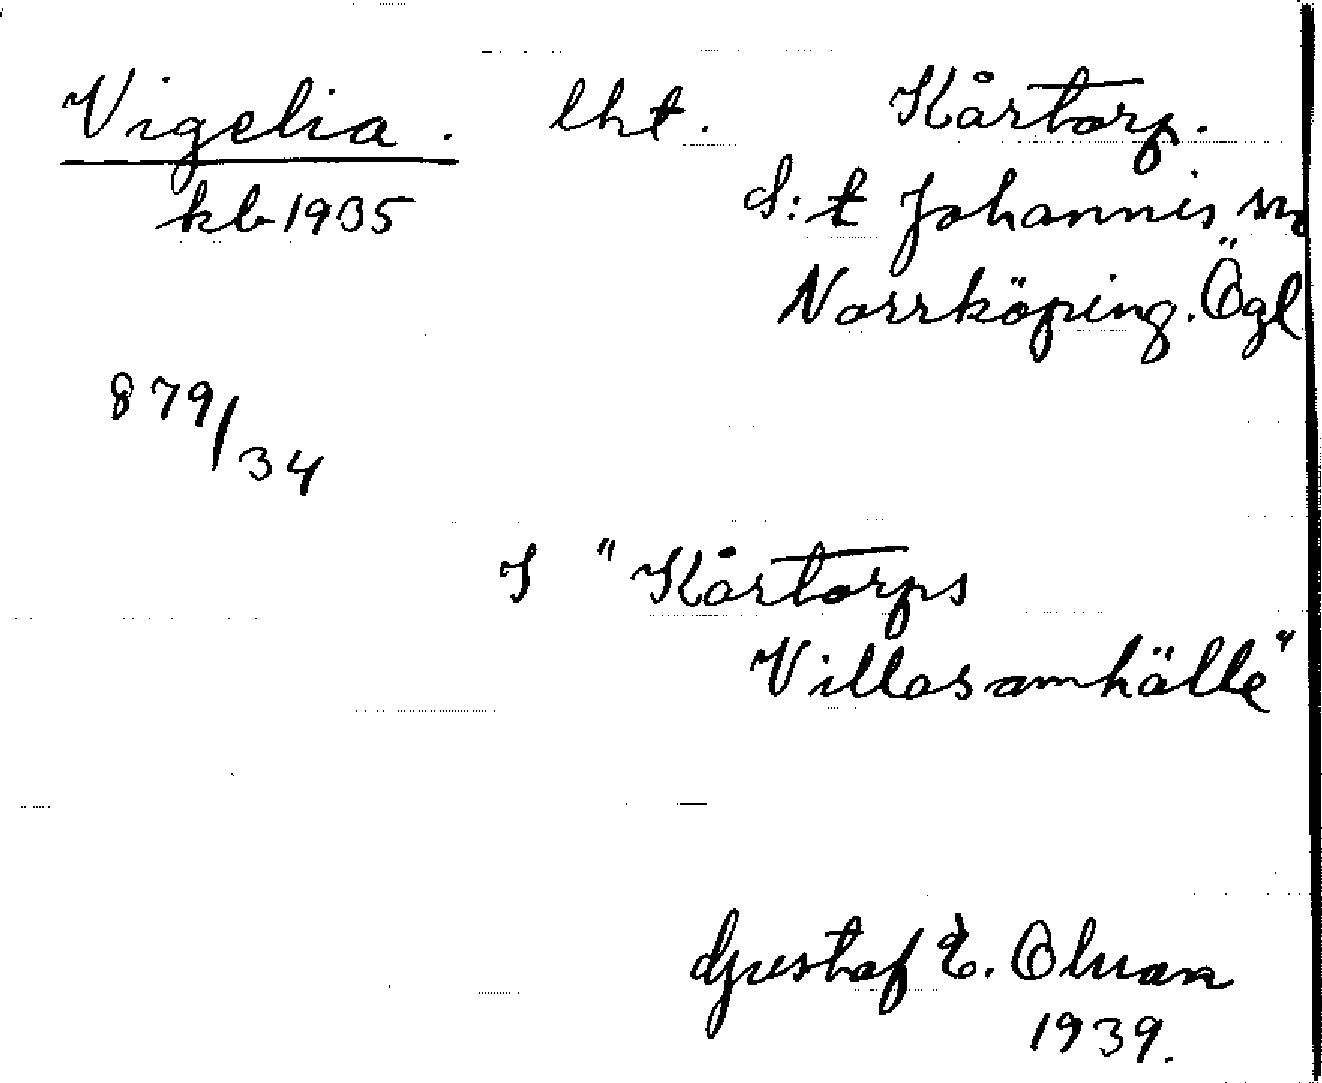 Vigelia. lht. Kårtorp.
kb 1935 S:t Johannis
Norrköping. Ögl
879/34
I "Kårtorps
Villasamhälle"
Gustaf E.
1939.